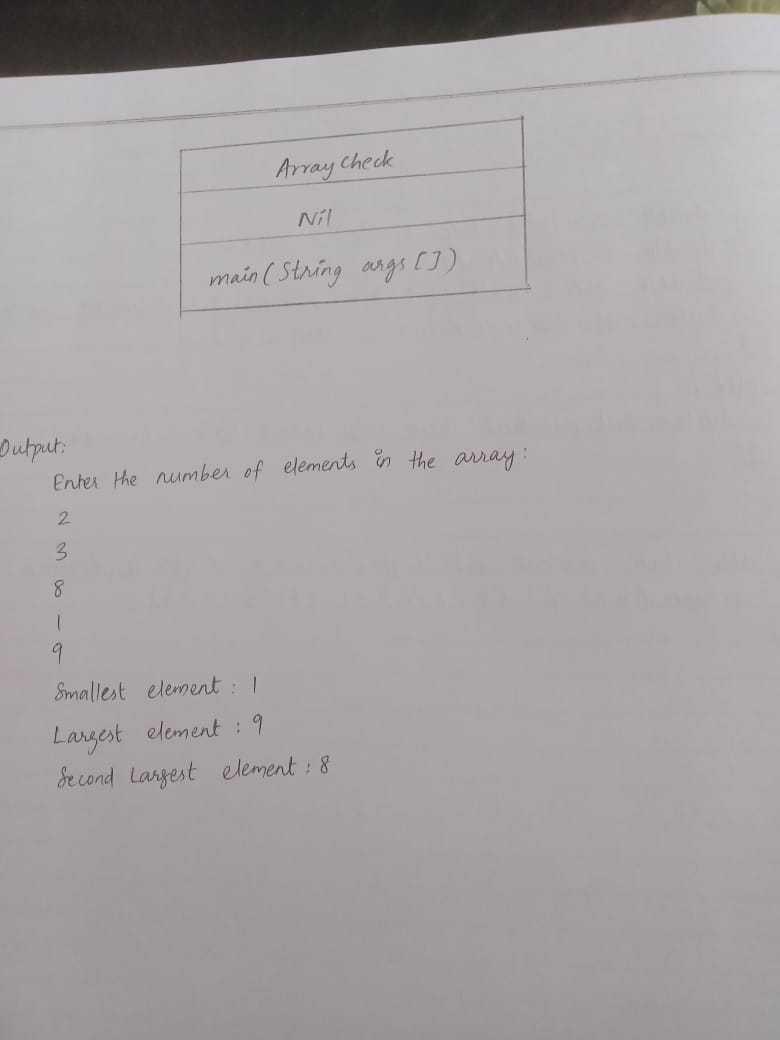 Array Check
Nil
main(String args[])
Output:
Enter the number of elements in the array:
2
3
8
1
9
Smallest element : 1
Largest element : 9
Second Largest element : 8